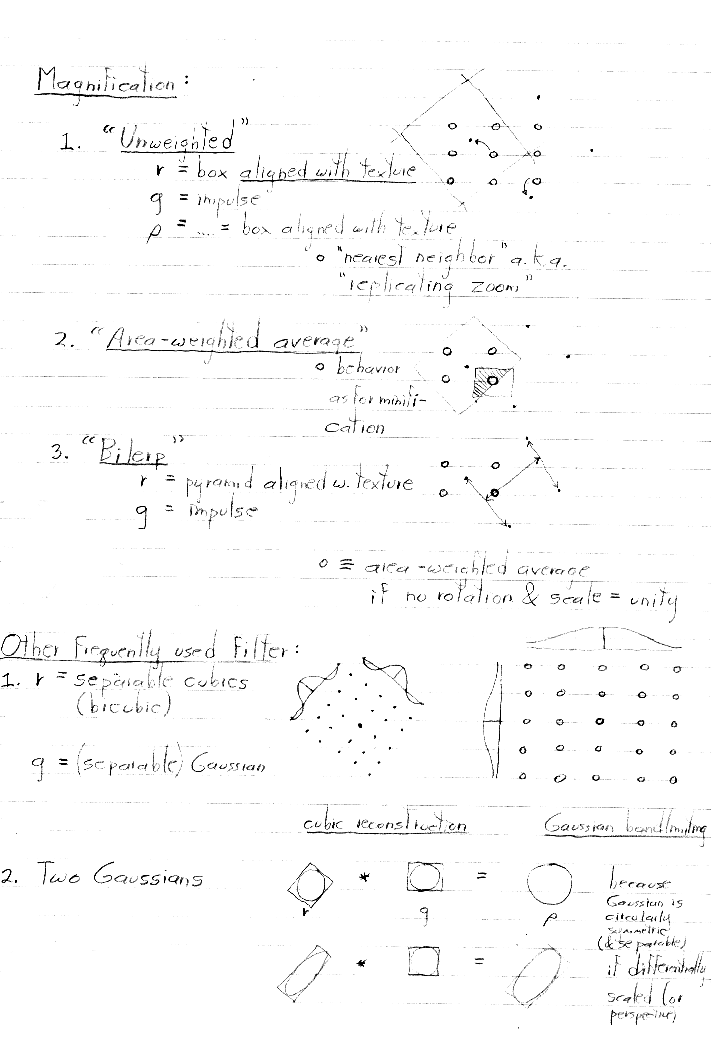 Magnification:
1. "Unweighted"
r = box aligned with texture
g = impulse
ρ = .... = box aligned with texture
o "nearest neighbor" a.k.a.
"replicating zoom"
2. "Area-weighted average"
o behavior
as for minifi-
cation
3. "Bilerp"
r = pyramid aligned w. texture
g = impulse
o ≡ area-weighted average
if no rotation & scale = unity
Other Frequently used Filter:
1. r = separable cubics
(bicubic)
g = (separable) Gaussian
cubic reconstruction
Gaussian bandlimiting
2. Two Gaussians
* =
r g ρ
because
Gaussian is
circularly
symmetric
(& separable)
* =
if differentially
scaled (or
perspective)